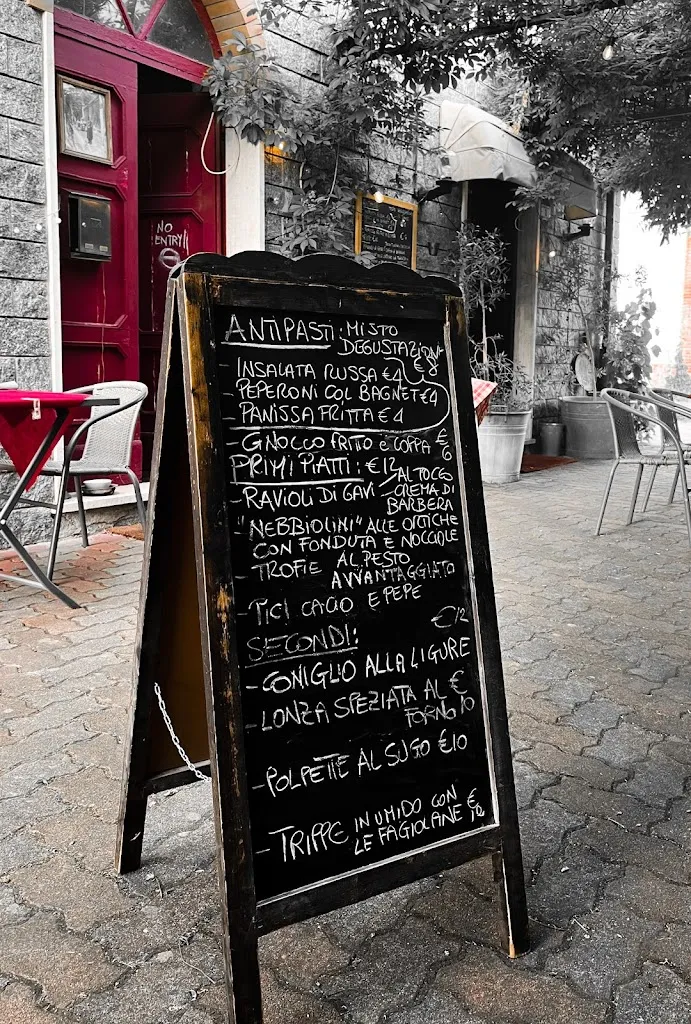 NO
ENTRY!!
ANTIPASTI: MISTO
DEGUSTAZION
€8
INSALATA RUSSA €4
-PEPERONI COL BAGNET €4
-PANISSA FRITTA €4
-GNOCCO FRITTO E COPPA €
6
PRIMI PIATTI: €12
-RAVIOLI DI GAVI
AL TOCO
CREMA DI
BARBERA
"NEBBIOLINI" ALLE ORTICHE
CON FONDUTA E NOCCIOLE
-TROFIE AL PESTO
AVVANTAGGIATO
-PICI CACIO E PEPE
SECONDI:
€12
-CONIGLIO ALLA LIGURE
-LONZA SPEZIATA AL €
FORNO 10
-POLPETTE AL SUGO €10
-TRIPPE IN UMIDO CON €
LE FAGIOLANE